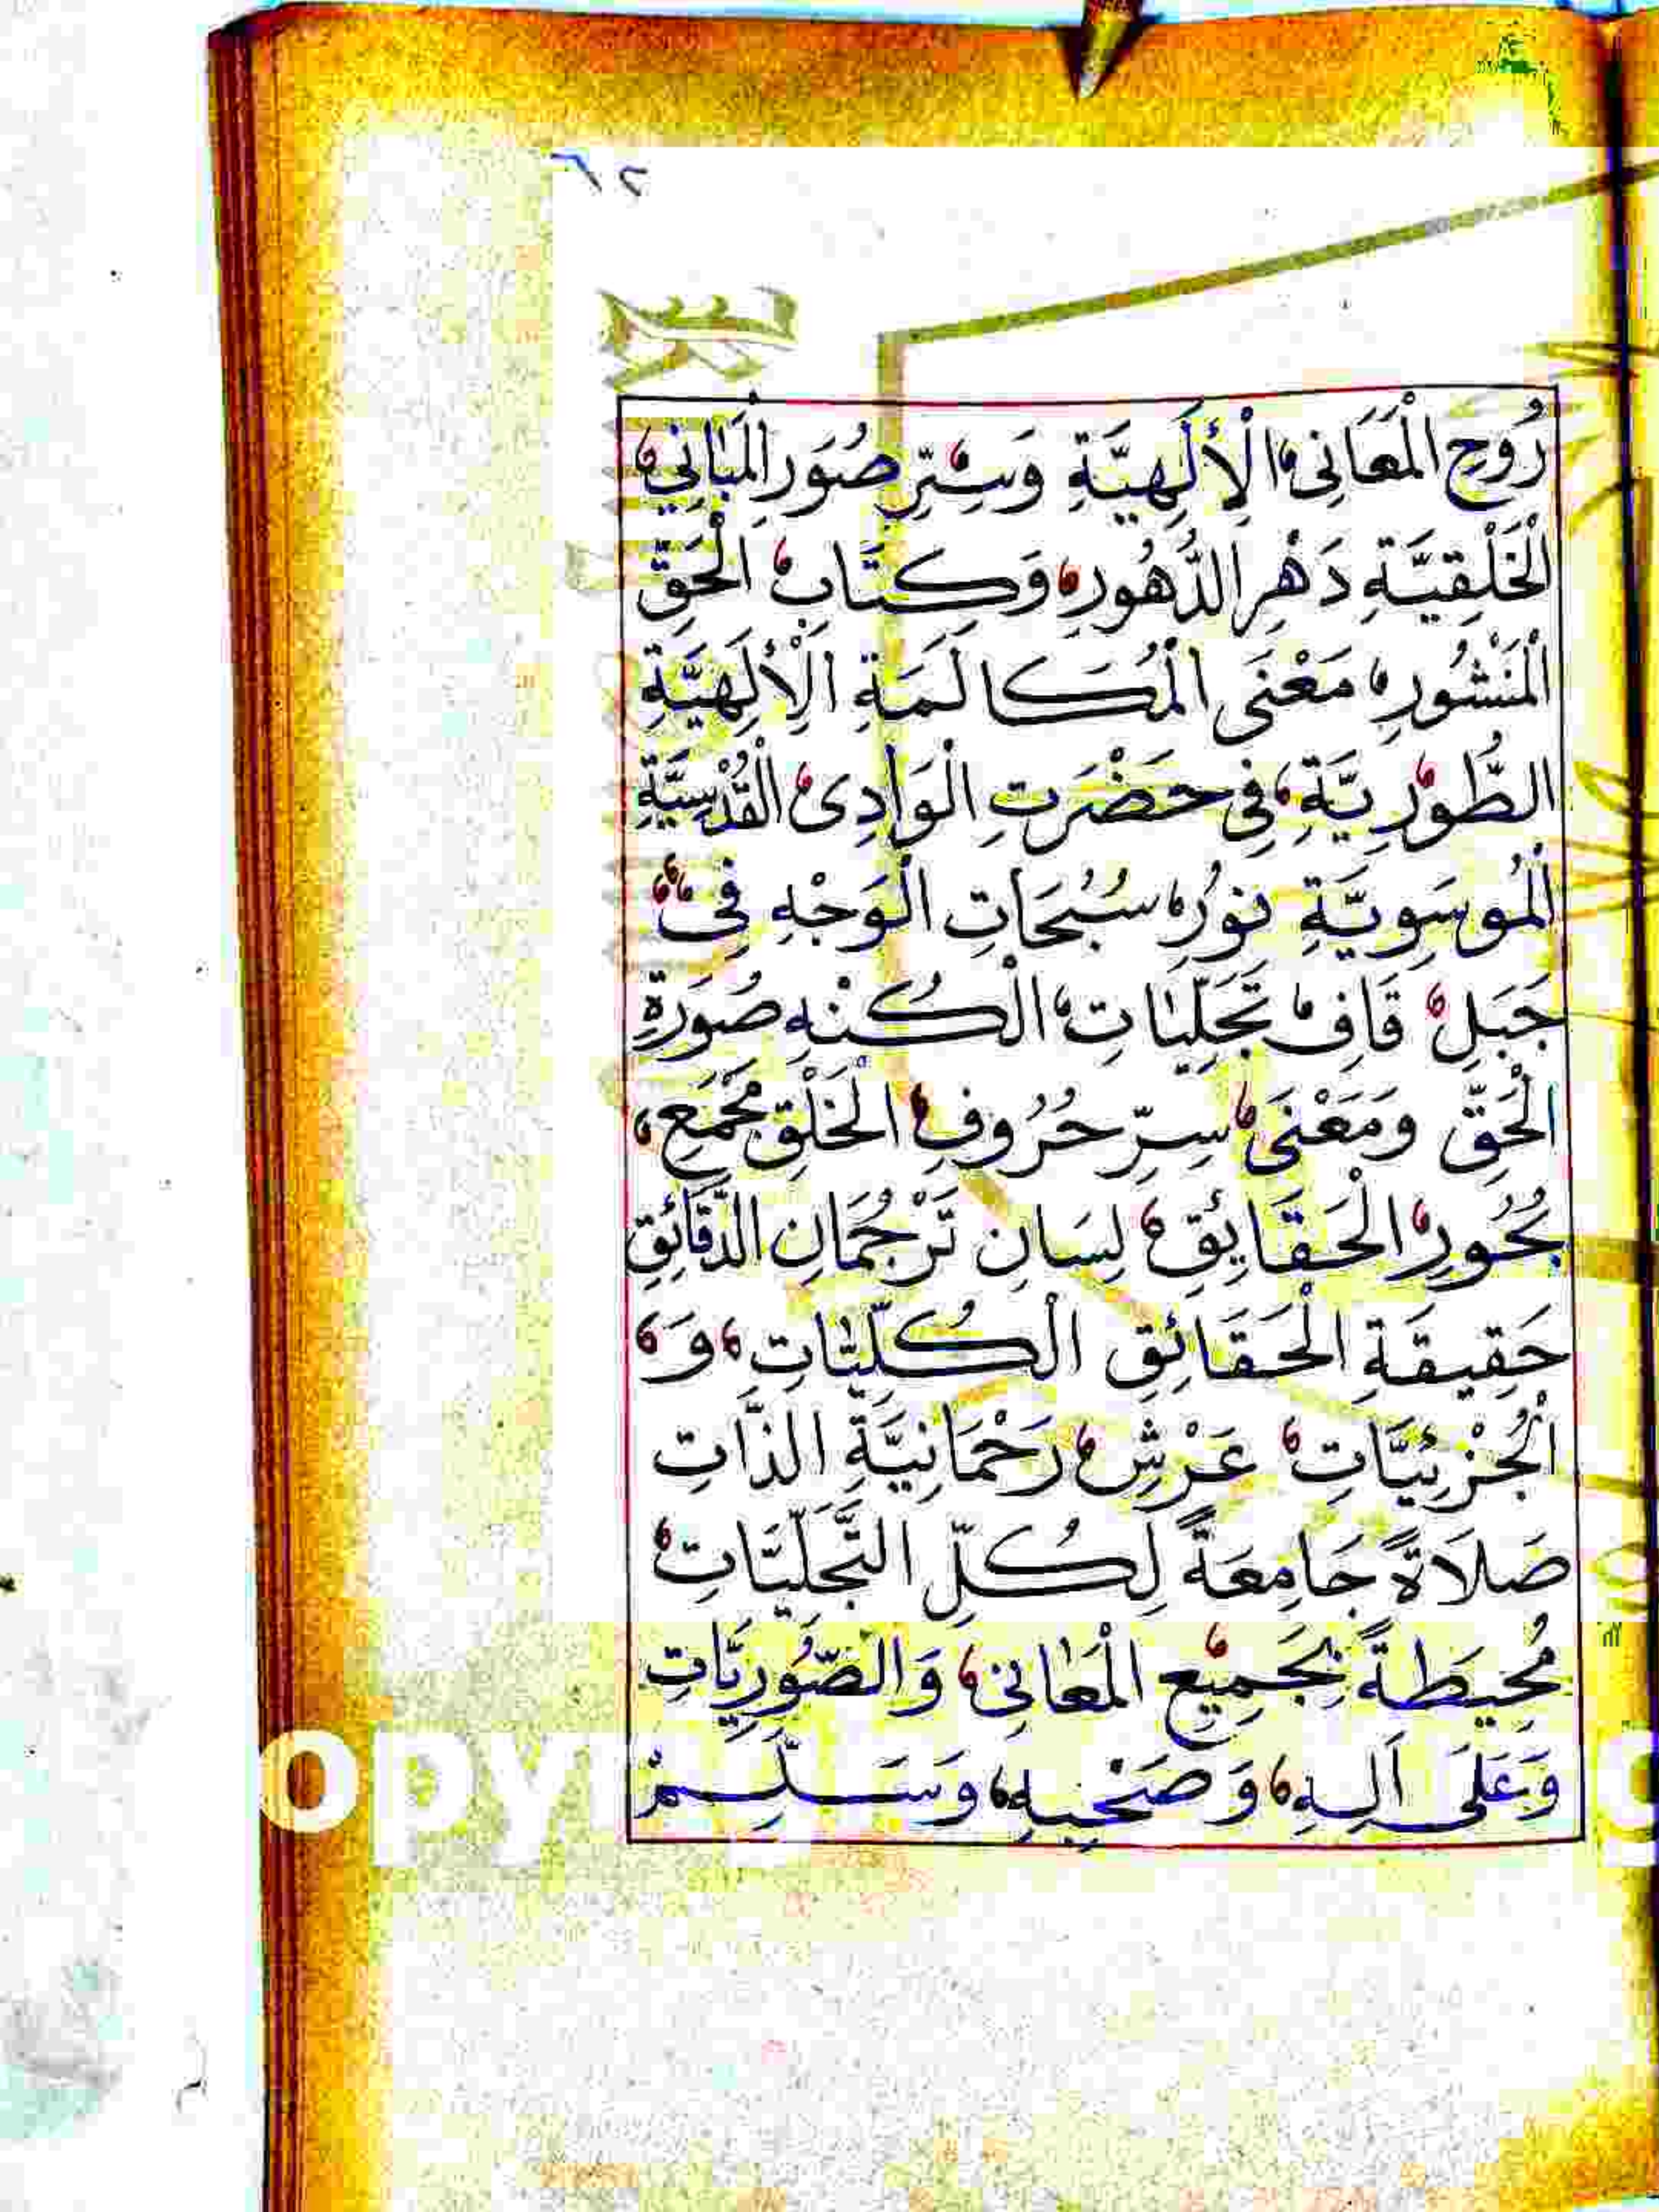 ٦٢
رُوحِ الْمَعَانِى الْأِلَهِيَّةِ وَسِرِّ صُوَرِ الْمَبَانِي
الْخَلْقِيَّةِ دَهْرِ الدُّهُورِ وَكِتَابِ الْحَقِّ
الْمَنْشُورِ مَعْنَى الْمُكَالَمَةِ الْأِلَهِيَّةِ
الطُّورِيَّةِ فِى حَضْرَتِ الْوَادِى الْقُدْسِيَّةِ
الْمُوسَوِيَّةِ نُورِ سُبُحَاتِ الْوَجْهِ فِى
جَبَلِ قَافِ تَجَلِّيَاتِ الْكُنْهِ صُورَةِ
الْحَقِّ وَمَعْنَى سِرِّ حُرُوفِ الْخَلْقِ مَجْمَعِ
بُحُورِ الْحَقَايِئقِ لِسَانِ تَرْجُمَانِ الدَّقَائِقِ
حَقِيقَةِ الْحَقَائِقِ الْكُلِّيَّاتِ وَ
الْجُزْئِيَّاتِ عَرْشِ رَحْمَانِيَّةِ الذَّاتِ
صَلَاةً جَامِعَةً لِكُلِّ التَّجَلِّيَّاتِ
مُحِيطَةً بِجَمِيْعِ الْمَعَانِى وَالصُّوَرِيَّاتِ
وَعَلَى اَلِهِ وَصَحْبِهِ وَسَلِّمْ